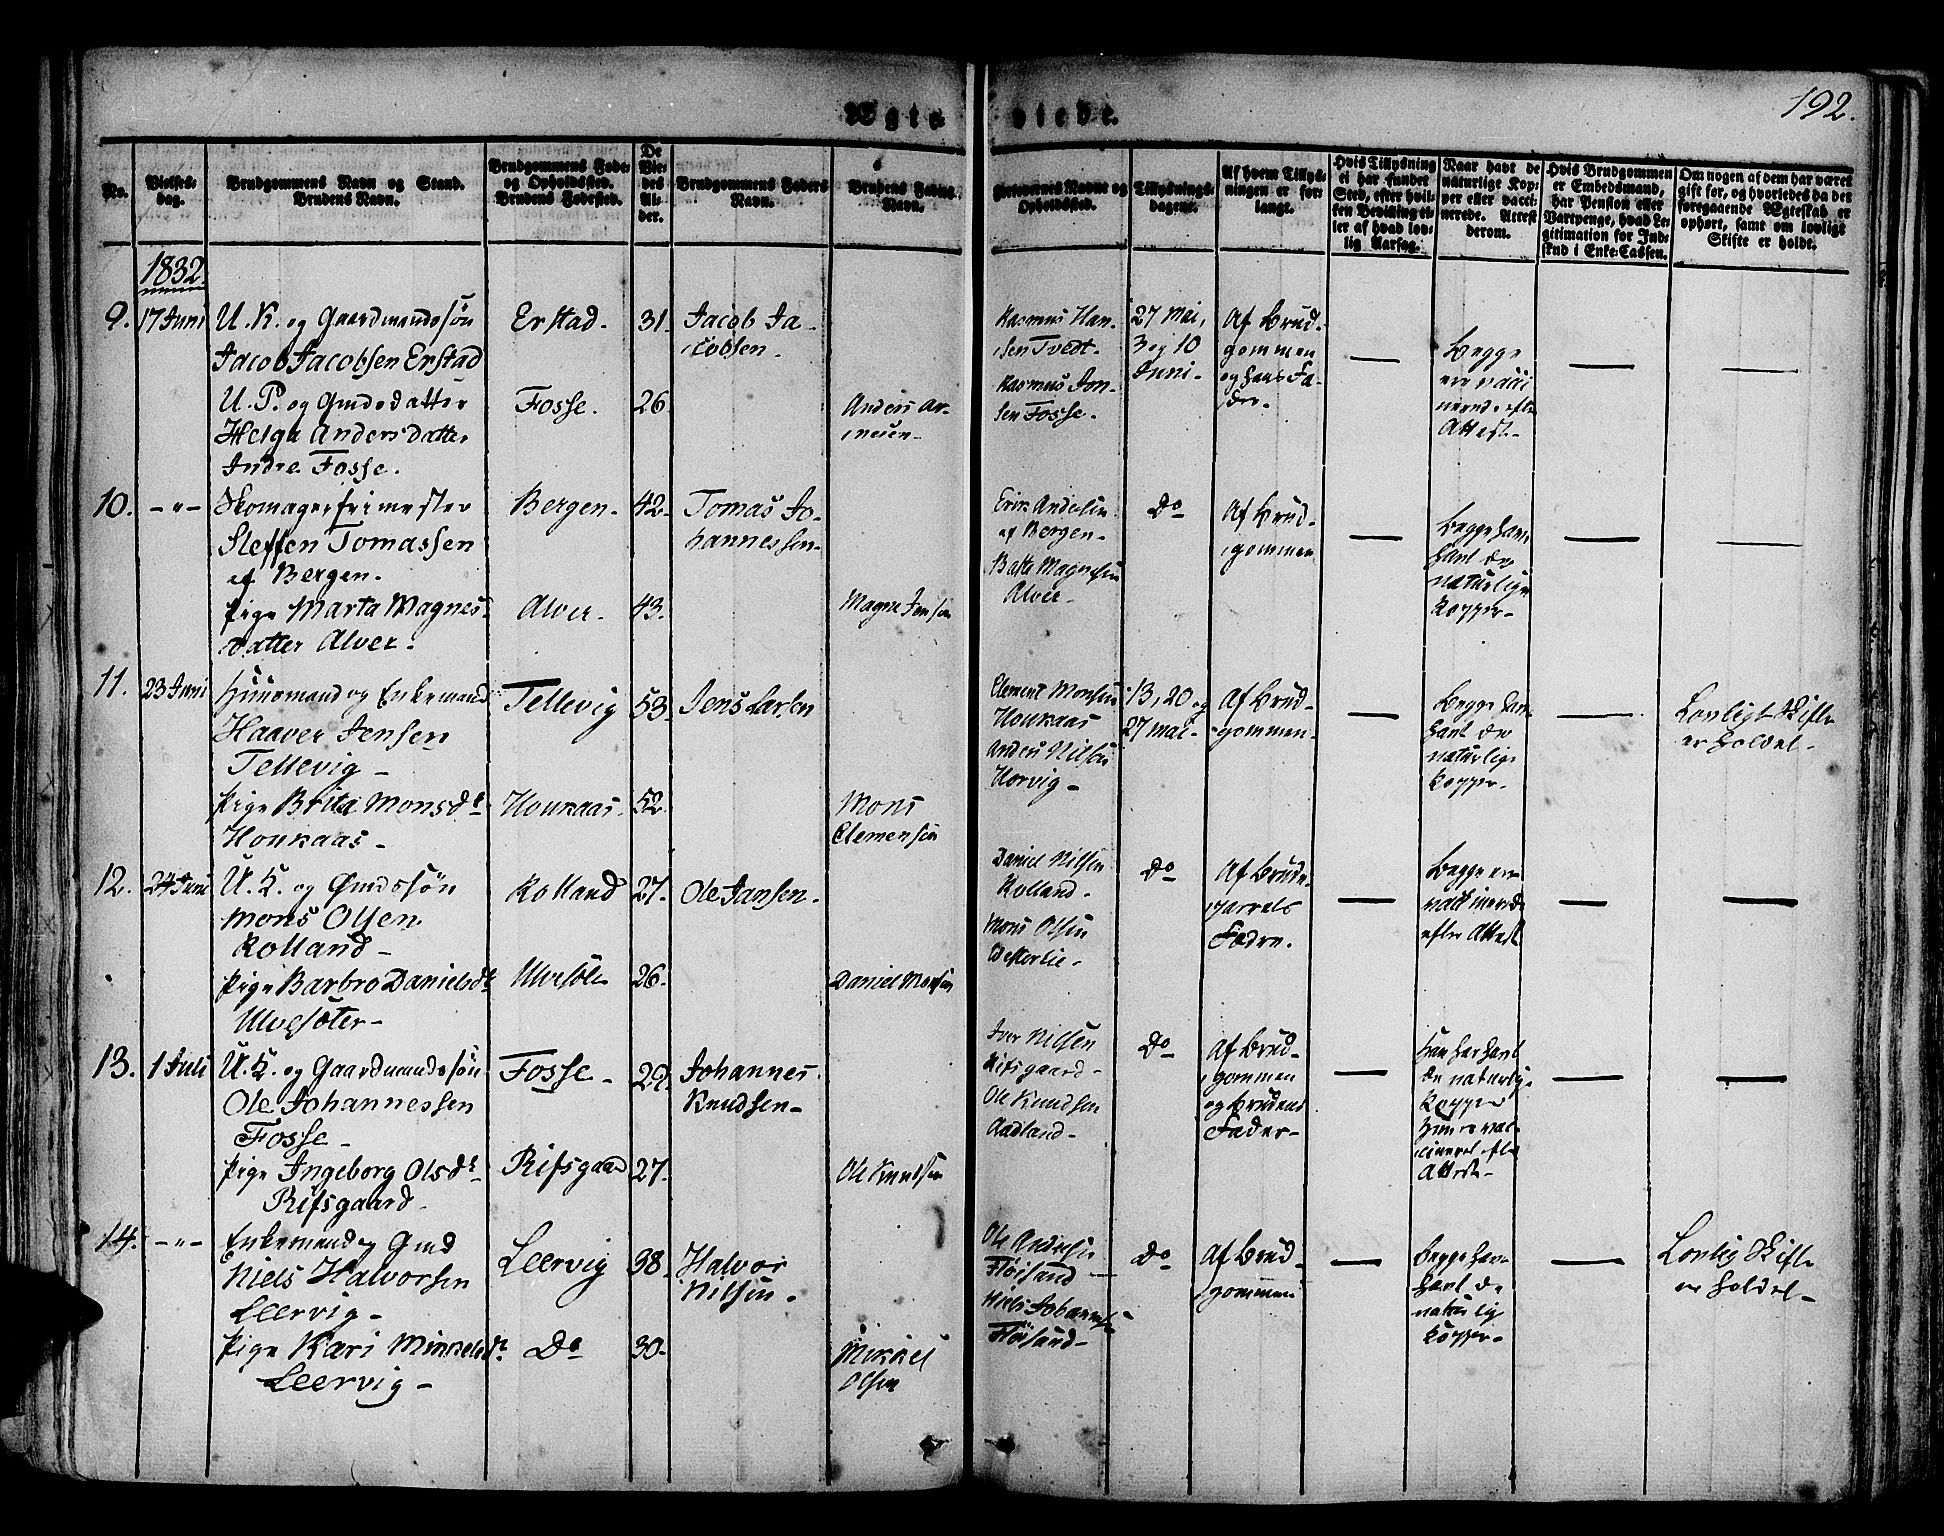 Ægte viede.
192.
No.
Vielses-dag.
Brudgommens Navn og Stand.
Brudens Navn.
Brudgommens Føde- og Opholdssted.
Brudens Fødested.
De Viedes Alder.
Brudgommens Faders Navn.
Brudens Faders Navn.
Forlovernes Navne og Opholdssted.
Tillysnings-dagene.
Af hvem Tillysningen er forlangt.
Hvis Tillysning ei har fundet Sted, efter hvilken Bevilling eller af hvad lovlig Aarsag.
Naar havt de naturlige Kopper eller vaccinerede. Attest derom.
Hvis Brudgommen er Embedsmand, har Pension eller Vartpenge, hvad Legitimation for Indskud i Enke-Cassen.
Om nogen af dem har været gift før, og hvorledes da det foregaaende Ægteskab er ophørt, samt om lovligt Skifte er holdt.
1832.
9. 17 Juni U. K. og Gaardmandssøn Erstad. 31. Jacob Ja-
Jacob Jacobsen Erstad cobsen.
U. P. og Gmdsdatter Fosse. 26. Anders Ar-
Helga Andersdatter nesen
Indre Fosse.
Rasmus Han-
sen Tvedt.
Rasmus Jon-
sen Fosse.
27 Mai,
3 og 10
Juni.
Af Brud-
gommen
og hans Fa-
der.
Begge
ere vacci
nerede efter
Attest.
10. -"- Skomagerfrimester Bergen. 42. Tomas Jo-
Steffen Tomassen hannessen.
af Bergen.
Pige Marta Magnes- Alver. 43. Magne Jensen
datter Alver.
af Bergen.
Magnesen
Alver.
Do
Af Brud-
gommen
Begge have
havt de
naturlige
Kopper.
11. 23 Juni Huusmand og Enkemand Tellevig 53. Jens Larsen
Haaver Jensen
Tellevig
Pige Brita Monsdr Houkaas. 52. Mons
Houkaas Clemensen
Clement Monsen
Houkaas
Anders Nilsen
Horvig
13, 20 og
27 Mai.
Af Brud-
gommen.
Begge have
havt de
naturlige
Kopper.
Lovligt Skifte
er holdet
12. 24 Juni U. K. og Gmdssøn Rolland 27. Ole Jansen.
Mons Olsen
Rolland
Pige Barbro Danielsdr 26. Daniel Monsen
Ulvesæter
Daniel Nilsen
Rolland.
Mons Olsen
Do
Af Brude-
parrets
Fædre.
Begge ere
vaccinerede
efter Attest
13. 1 Juli U. K. og Gaardmandssøn Fosse 29. Johannes
Ole Johannessen Knudsen
Fosse
Pige Ingeborg Olsdr Rifsgaard 27. Ole Knudsen
Rifsgaard
Iver Nilsen
Rifsgaard
Ole Knudsen
Aadland
Do
Af Brud-
gommen
og Brudens
Fader
Han har havt
de naturlige
Kopper
Hun er vac-
cineret efter
Attest
14. -"- Enkemand og Gmd Leervig 38. Halvor
Niels Halvorsen Nilsen.
Leervig
Pige Kari Mikkelsdr Do 30. Mikkel
Leervig Olsen
Ole Andersen
Fløisand
Niels Johannesen
Fløisand
Do
Af Brud-
gommen
Begge have
havt de
naturlige
Kopper.
Lovlig Skifte
er holdet